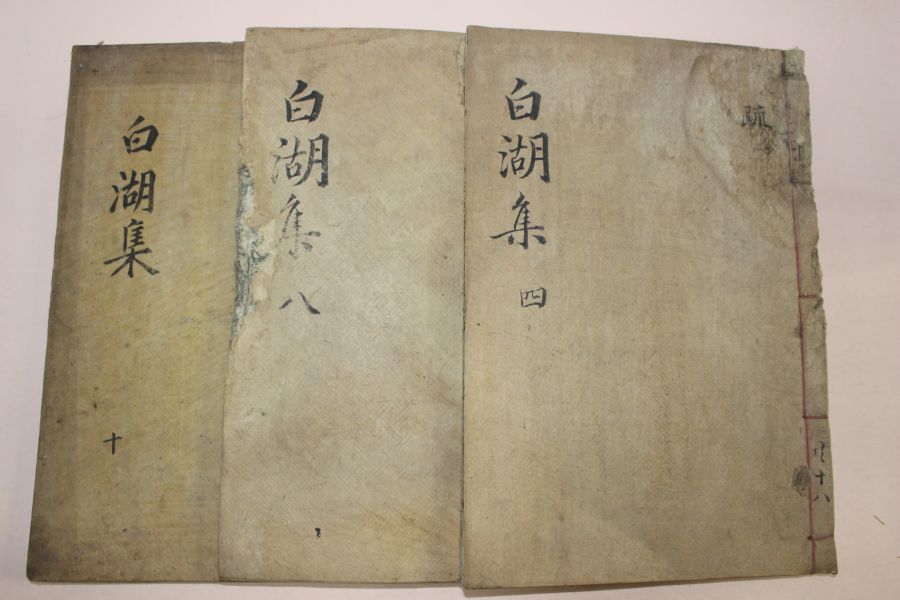 白湖集
四
疏
共十八
白湖集
八
白湖集
十